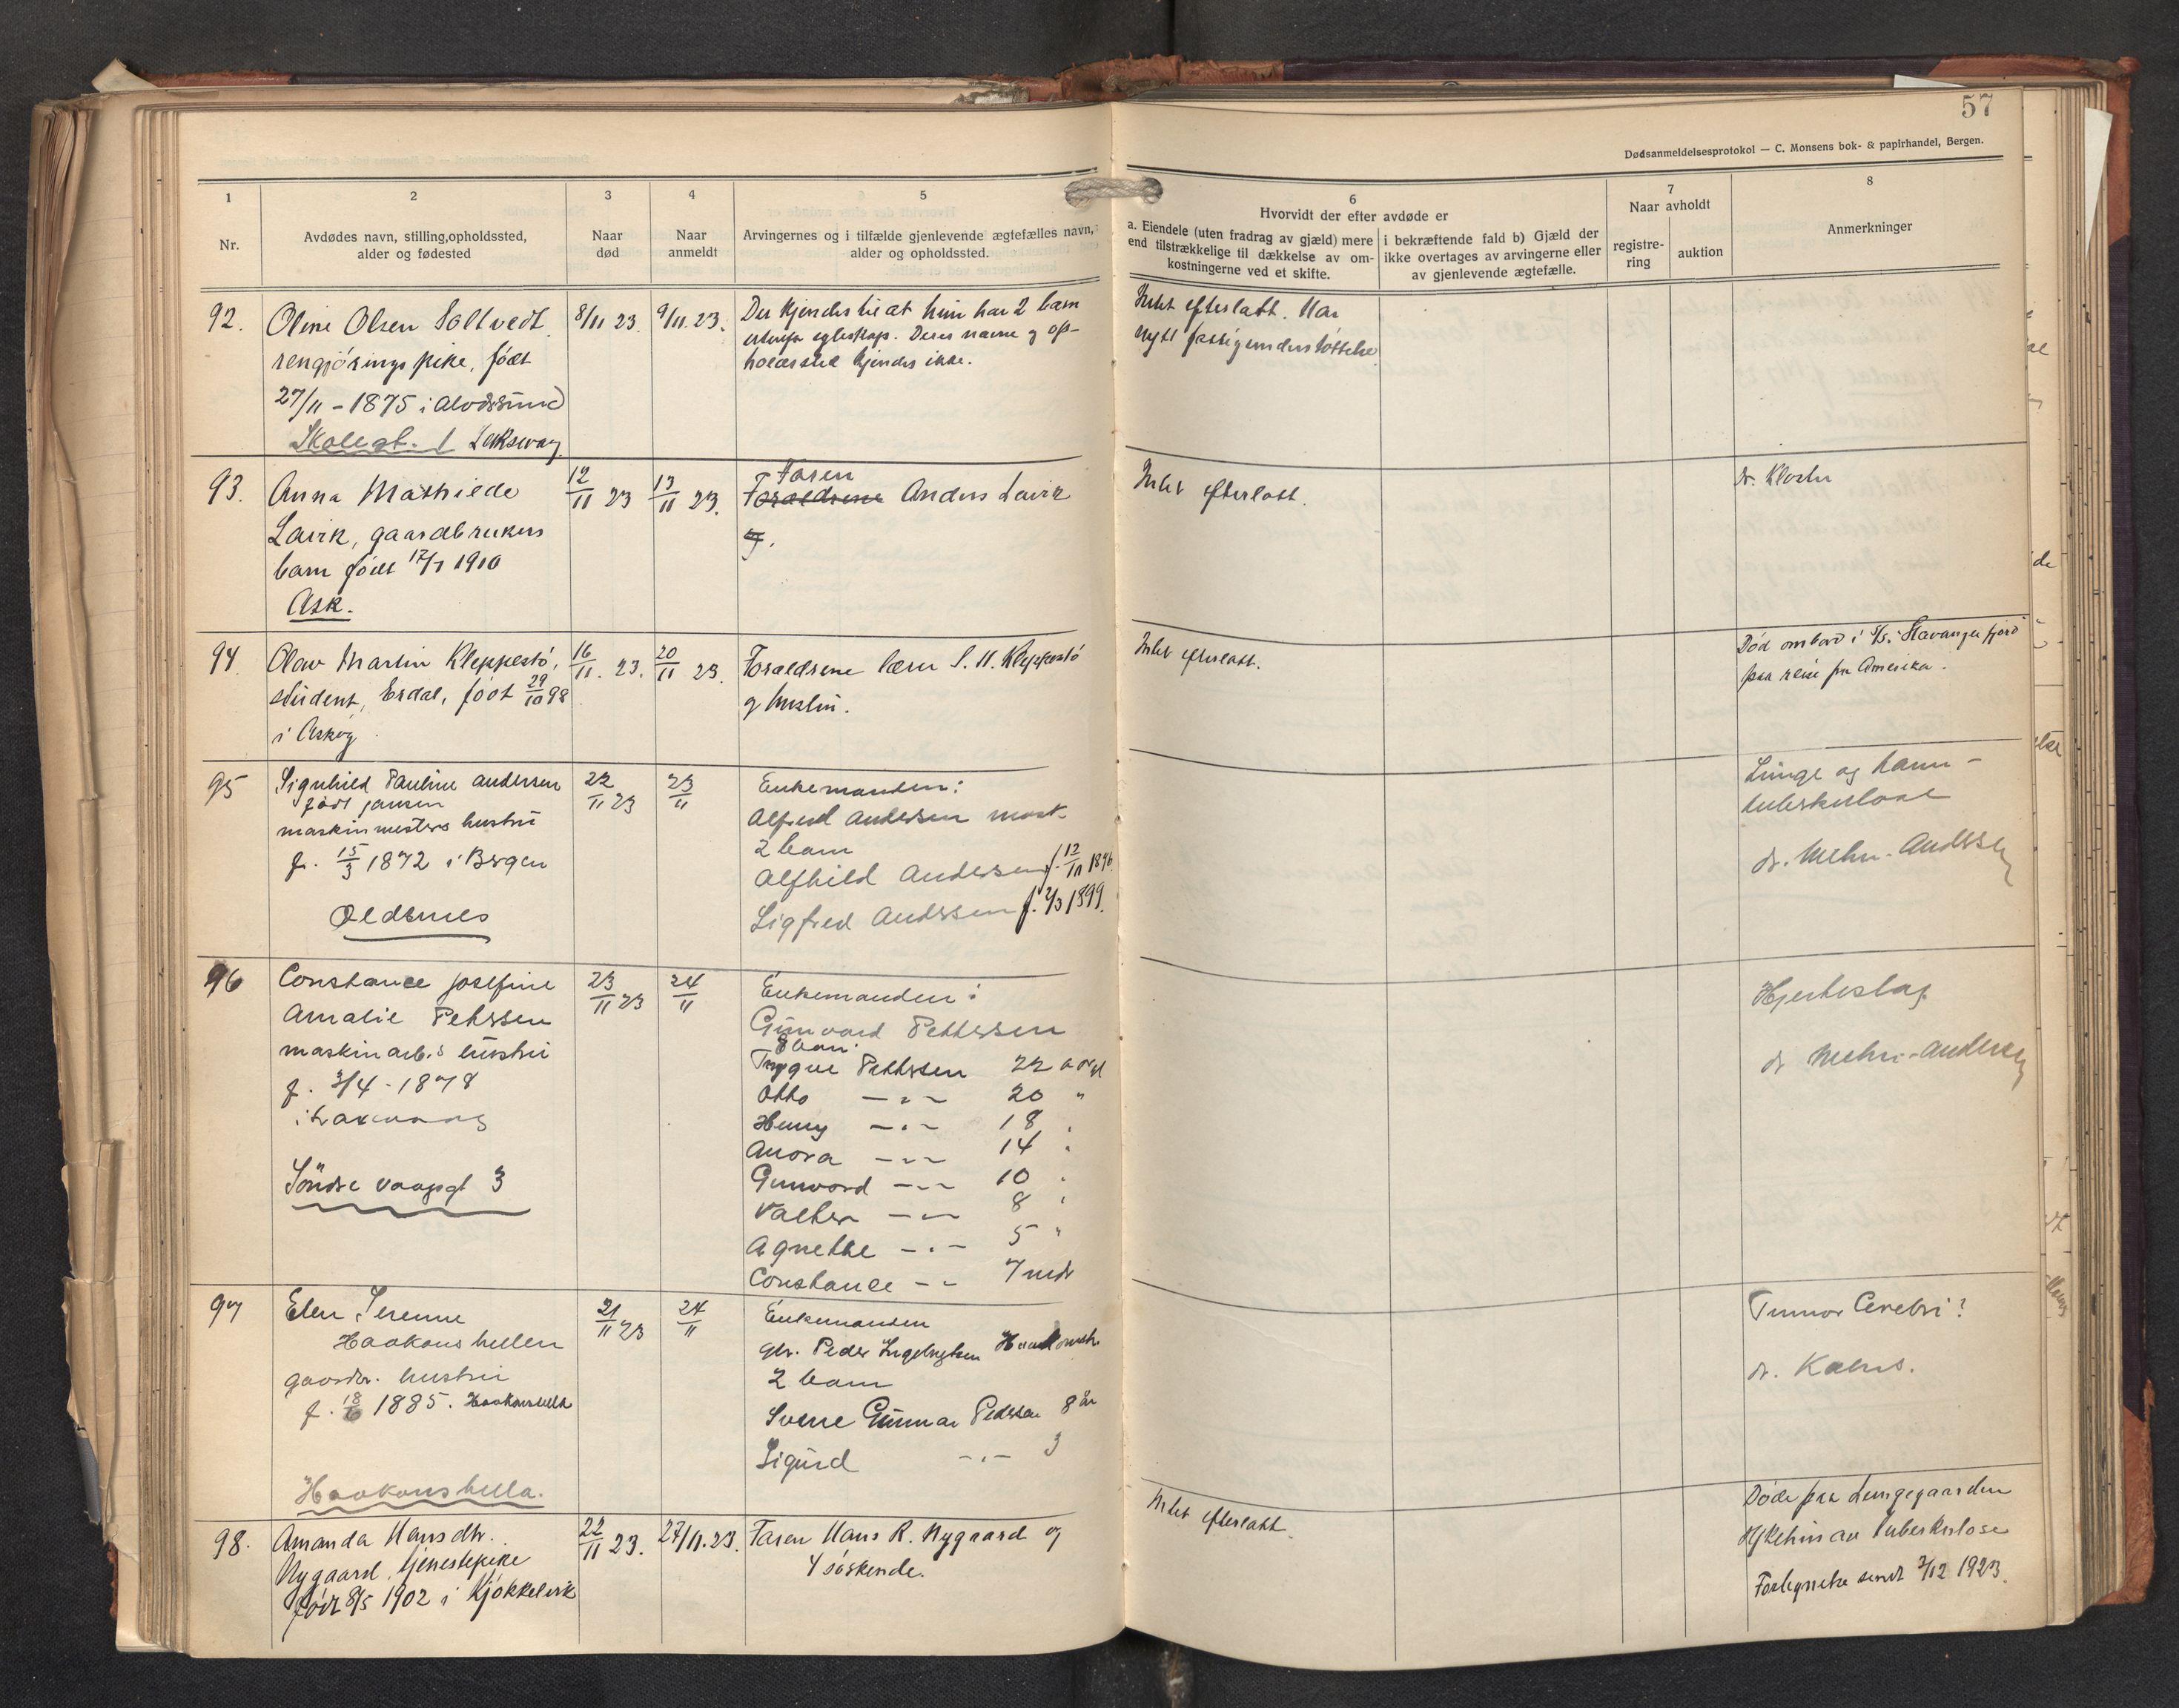 57
Dødsanmeldelsesprotokol — C. Monsens bok- & papirhandel, Bergen.
1
Nr.
2
Avdødes navn, stilling, opholdssted,
alder og fødested
3
Naar
død
4
Naar
anmeldt
5
Arvingernes og i tilfælde gjenlevende ægtefælles navn,
alder og opholdssted.
6
Hvorvidt der efter avdøde er
a. Eiendele (uten fradrag av gjæld) mere
end tilstrækkelige til dækkelse av om-
kostningerne ved et skifte.
i bekræftende fald b) Gjæld der
ikke overtages av arvingerne eller
av gjenlevende ægtefælle.
7
Naar avholdt
registre-
ring
auktion
8
Anmerkninger
92.
Oline Olsen Soltvedt
rengjøringspike, født
27/11 - 1875 i Alvøsund
Skolegt. 1 Laksevaag
8/11 23.
9/11. 23.
Det kjendes til at hun har 2 barn
utenfor egteskap. Deres navne og op-
holdssted kjendes ikke.
Intet efterlatt. Har
nytt fattigunderstøttelse
93.
Anna Mathilde
Lavik, gaardbrukers
barn født 17/7 1910
Ask.
12/11 23
13/11 23.
Faren
Forældrene Anders Lavik
og.
Intet efterlatt.
dr. Kloster
94
Olav Martin Kleppestø,
student, Erdal, født 29/10 98
i Askøy
16/11. 23.
20/11 23.
Forældrene lærer S. H. Kleppestø
og hustru.
Intet efterlatt.
Død ombord i S/S. "Stavangerfjord"
paa reise fra Amerika.
95
Signhild Pauline Andersen
født Jansen
maskinmesters hustru
f. 15/3 1872 i Bergen
Øldernes
22/11 23
23/11
Enkemanden:
Alfred Andersen mask.
2 barn
Alfhild Andersen f. 12/11 1896
Sigfred Andersen f. 2/3 1899.
Lunge og tarm-
tuberkulose
dr. Mehn-Andersen
96
Constance Josefine
Amalie Pettersen
maskinarb.s hustru
f. 3/4 - 1878
i Laxevaag
Søndre vaagsgt 3
23/11 23
24/11
Enkemanden:
Gunvard Pettersen
8 barn.
Trygve Pettersen 22 aar gl
Otto — " — 20 "
Henry — " — 18 "
Anora — " — 14 "
Gunvord — " — 10 "
Valter — " — 8 "
Agnethe — " — 5 "
Constance — " — 7 mdr
Hjerteslag
dr Mehn-Andersen
97
Elen Serenne
Haakonshellen
gaardbr. hustru
f. 18/6 1885. Haakonshella
Haakonshella.
21/11 23
24/11
Enkemanden
gbr. Peder Ingebrigtsen Haakonsh.
2 barn
Sverre Gunnar Pedersen 8 år
Sigurd — " — 3
Tumor Cerebri?
dr. Kahrs.
98.
Amanda Hansdtr.
Nygaard, tjenestepike
født 8/5 1902 i Kjøkkelvik
22/11 23.
27/11. 23.
Faren Hans R. Nygaard og
4 søskende.
Intet efterlatt.
Døde paa Lungegaarden
Sykehus av tuberkulose
Fortegnelse sendt 3/12 1923.